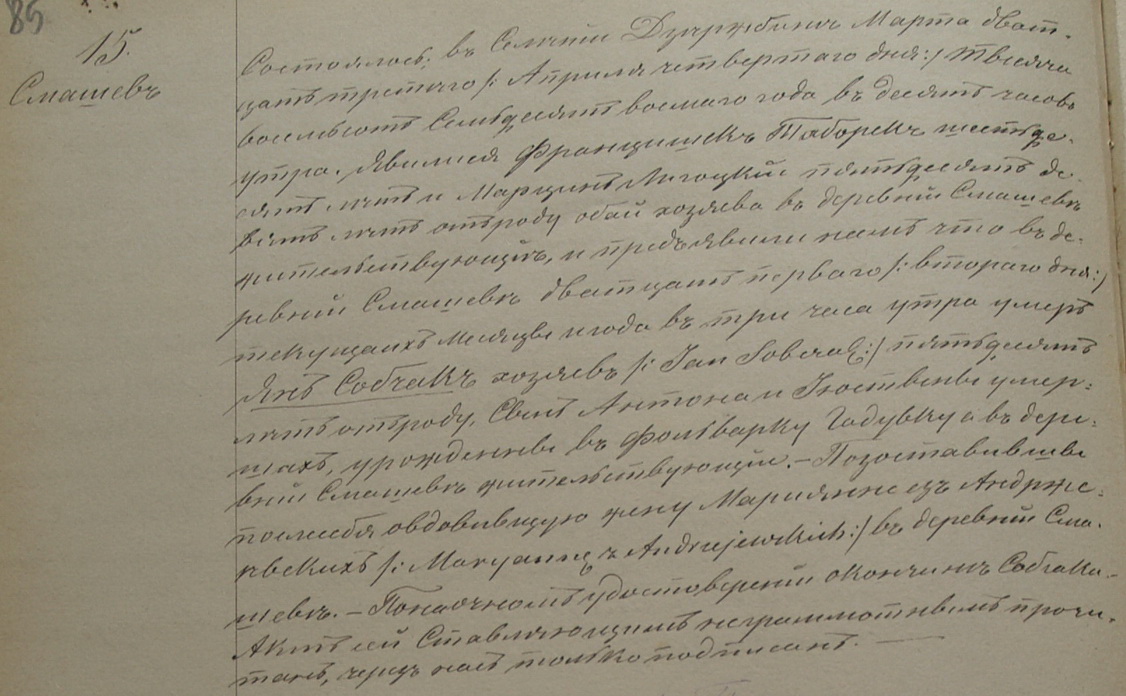 85
15.
Смашевъ
Состоялось въ Селѣніи Дзержбинъ Марта дват-
цать третьяго /: Апрѣля четвертаго дня:/ тысяча
восемьсотъ Семьдесятъ восмаго года въ десять часовъ
утра. Явились Францишекъ Таборекъ шестьде-
сятъ лѣтъ и Марцинъ Лигоцкій пятьдесятъ де-
вять лѣтъ отъ роду обай хозяева въ деревнѣ Смашевъ
жительствующіе, и предъявили намъ что въ де-
ревнѣ Смашевъ дватцать перваго /: втораго дня:/
текущихъ мѣсяца и года въ три часа утра умеръ
Янъ Собчакъ хозяевъ /: Jan Sobczak:/ пятьдесятъ
лѣтъ отроду, Сынъ Антона и Юстыны умер-
шихъ, урожденны въ Фольварку Гадувку а въ дере-
внѣ Смашевъ жительствующій. – Позоставивши
послѣ себя овдовѣвшую жену Марыянну изъ Андрже-
евскихъ /: Maryannę z Andrzejewskich:/ въ деревнѣ Сма-
шевъ. – Понаочномъ удостовѣреніи окончинъ Собчака –
Актъ сей Ставляющимъ неграмотнымъ прочи-
танъ, чрезъ насъ только подписанъ. —